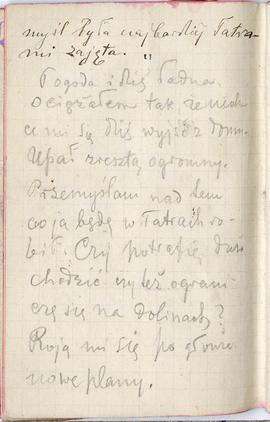 myśl była najbardziej Tatra-
mi zajęta. "
Pogoda i dziś ładna.
Ociężałem tak, że nich
ce mi się dziś wyjść z domu.
Upał zresztą ogromny.
Przemyśłam nad tem
co ja będę w Tatrach ro-
bił. Czy potrafię dziś
chodzić czy też ograni
czę się na dolinach?
Roją mi się po głowie
nowe plany.